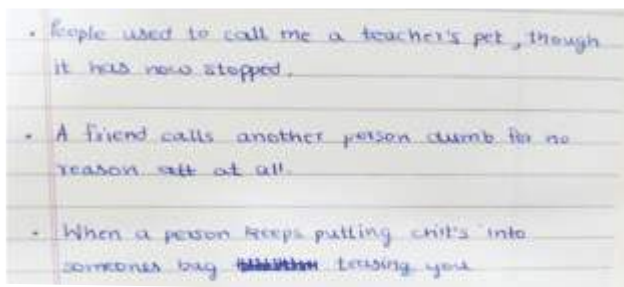 • People used to call me a teacher's pet, though
it has now stopped.
• A friend calls another person dumb for no
reason at all.
• When a person keeps putting chit's into
someones bag teasing you